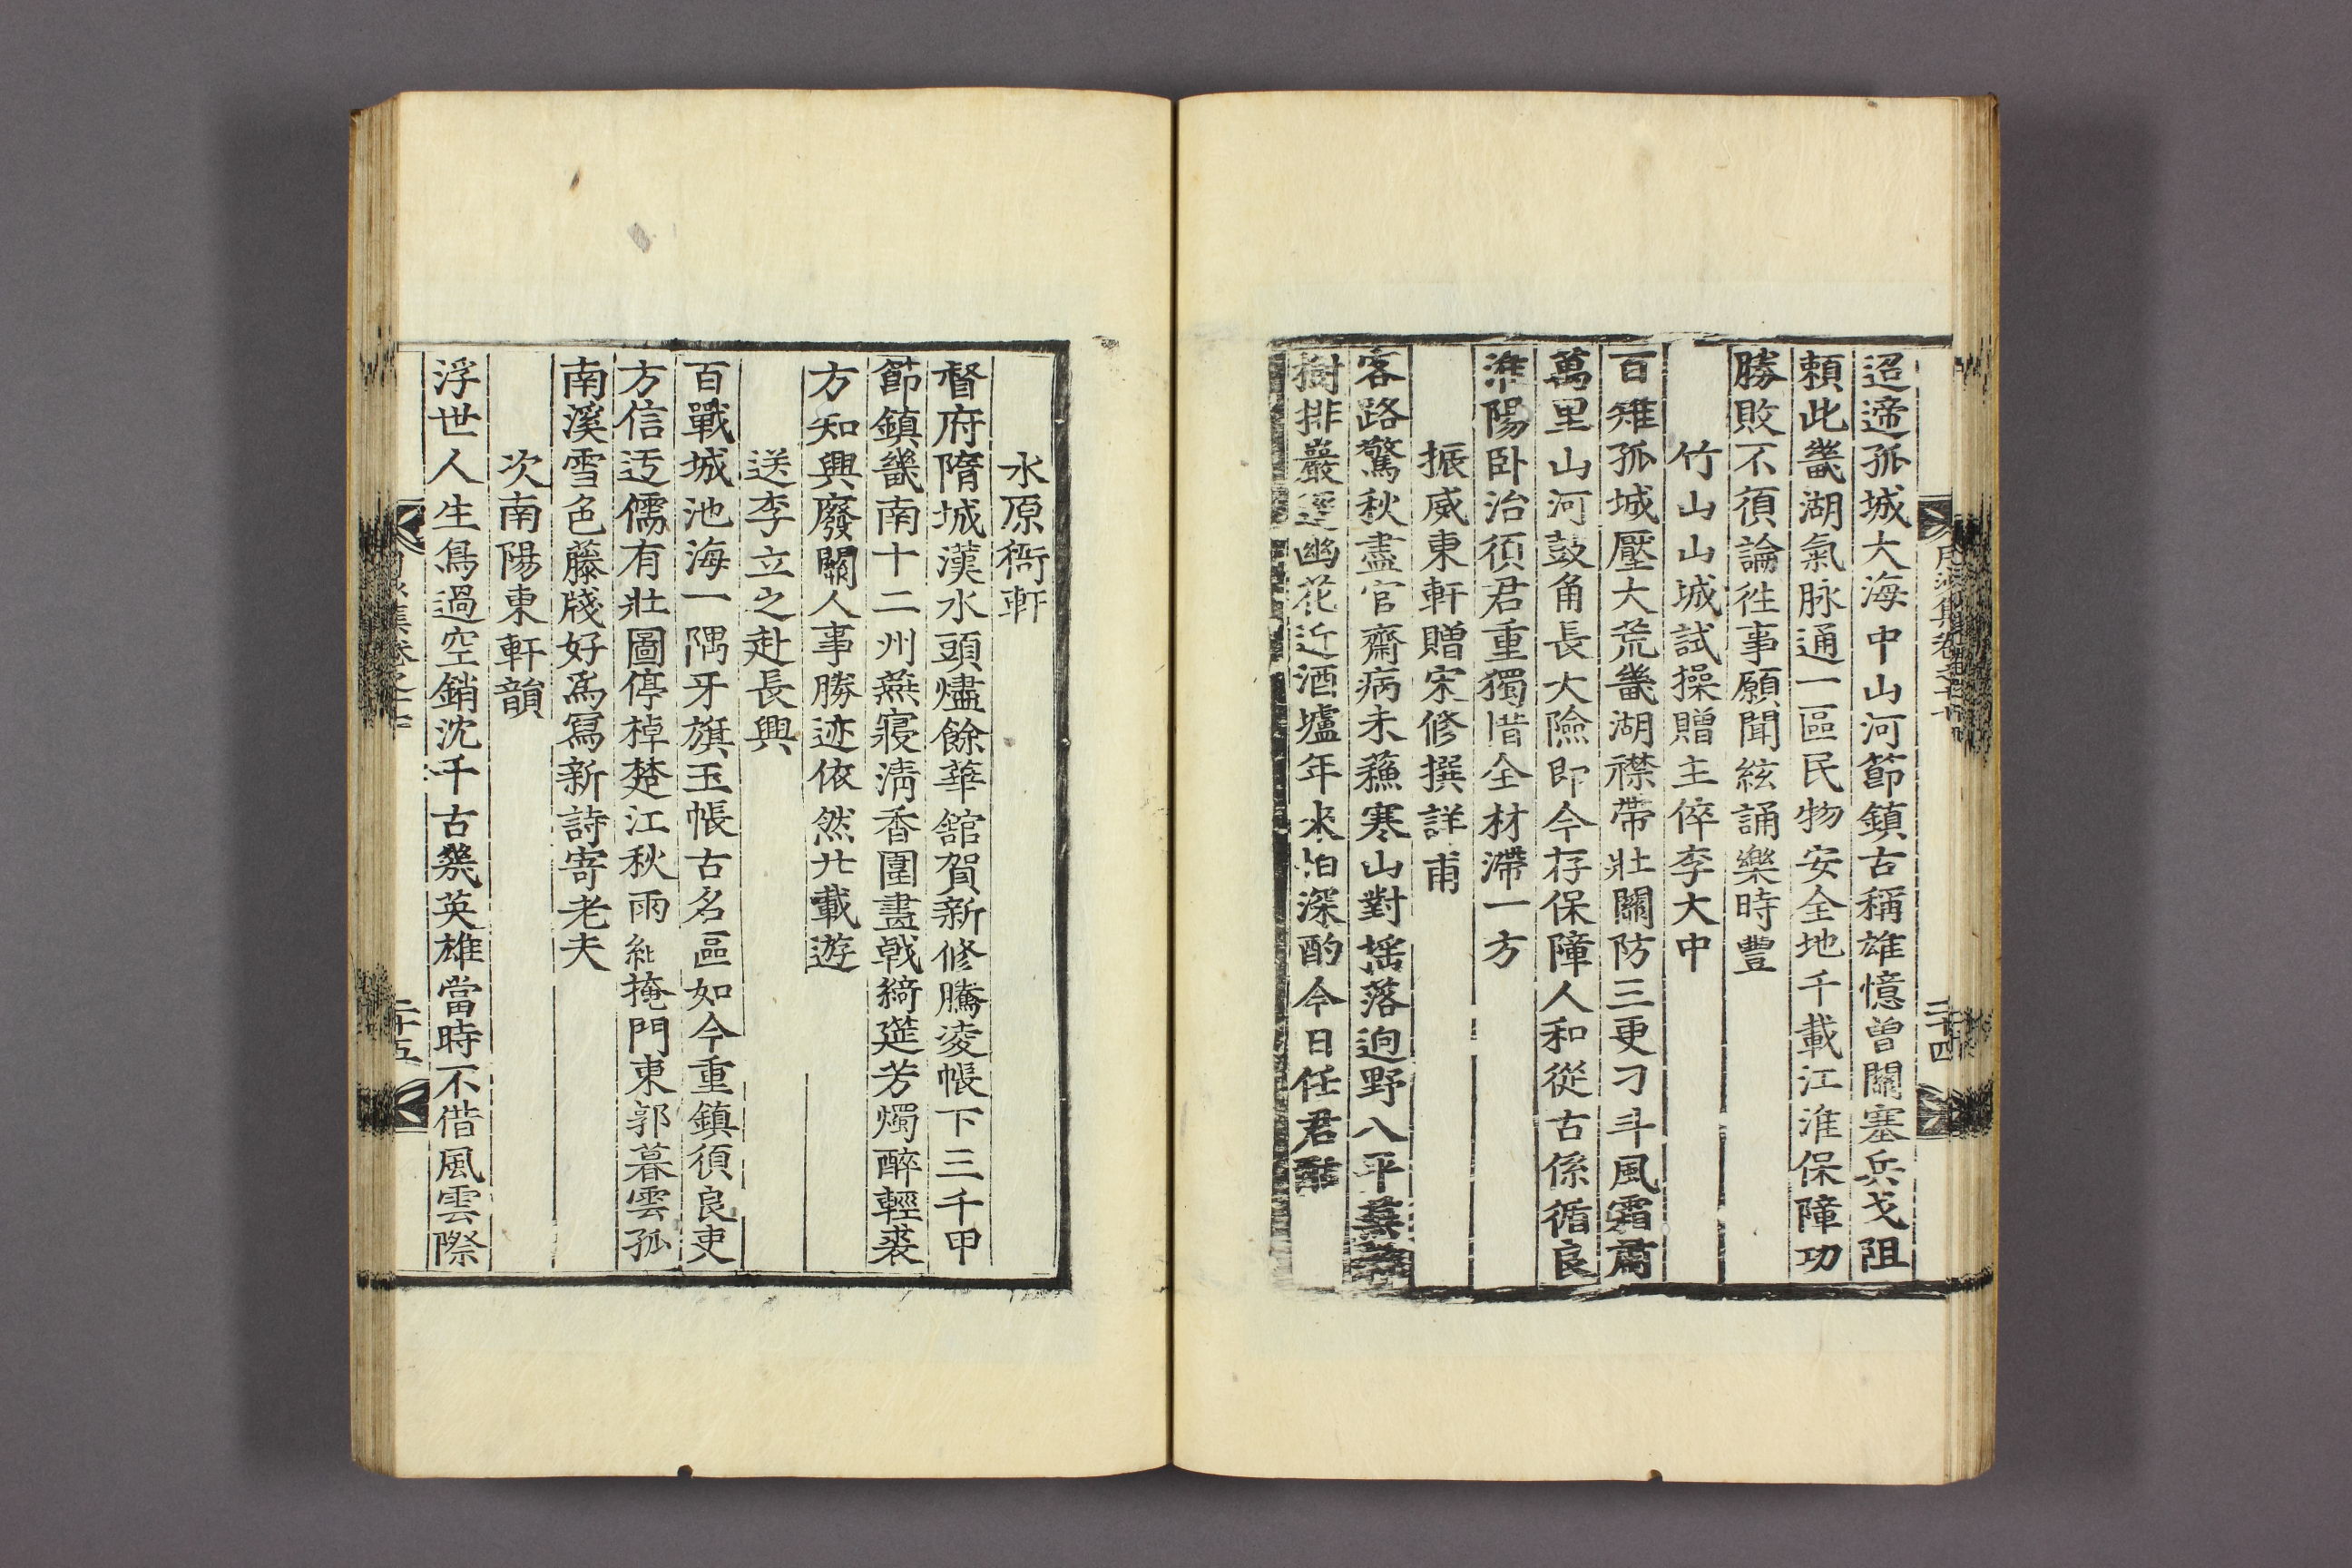 迢遰孤城大海中山河節鎮古稱雄憶曾關塞兵戈阻
頼此畿湖氣脉通一區民物安全地千載江淮保障功
勝敗不須論徃事願聞絃誦樂時豐
竹山山城試操贈主倅李大中
百雉孤城壓大荒畿湖襟帶壯關防三更刁斗風霜肅
萬里山河鼓角長大險即今存保障人和從古係循良
淮陽卧治須君重獨惜全材滯一方
振威東軒贈宋修撰詳甫
客路驚秋盡官齋病未蘓寒山對搖落逈野入平蕪
樹排巖逕幽花近酒壚年來怕深酌今日任君
二十四
水原衙軒
督府隋城漢水頭燼餘華舘賀新修騰凌帳下三千甲
節鎮畿南十二州燕寢淸香圍畫戟綺筵芳燭醉輕裘
方知興廢關人事勝迹依然廿載遊
送李立之赴長興
百戰城池海一隅牙旗玉帳古名區如今重鎮須良吏
方信迃儒有壯圖停棹楚江秋雨紲掩門東郭暮雲孤
南溪雪色藤牋好爲寫新詩寄老夫
次南陽東軒韻
浮世人生鳥過空銷沈千古幾英雄當時不偕風雲際
集卷之十
二十五